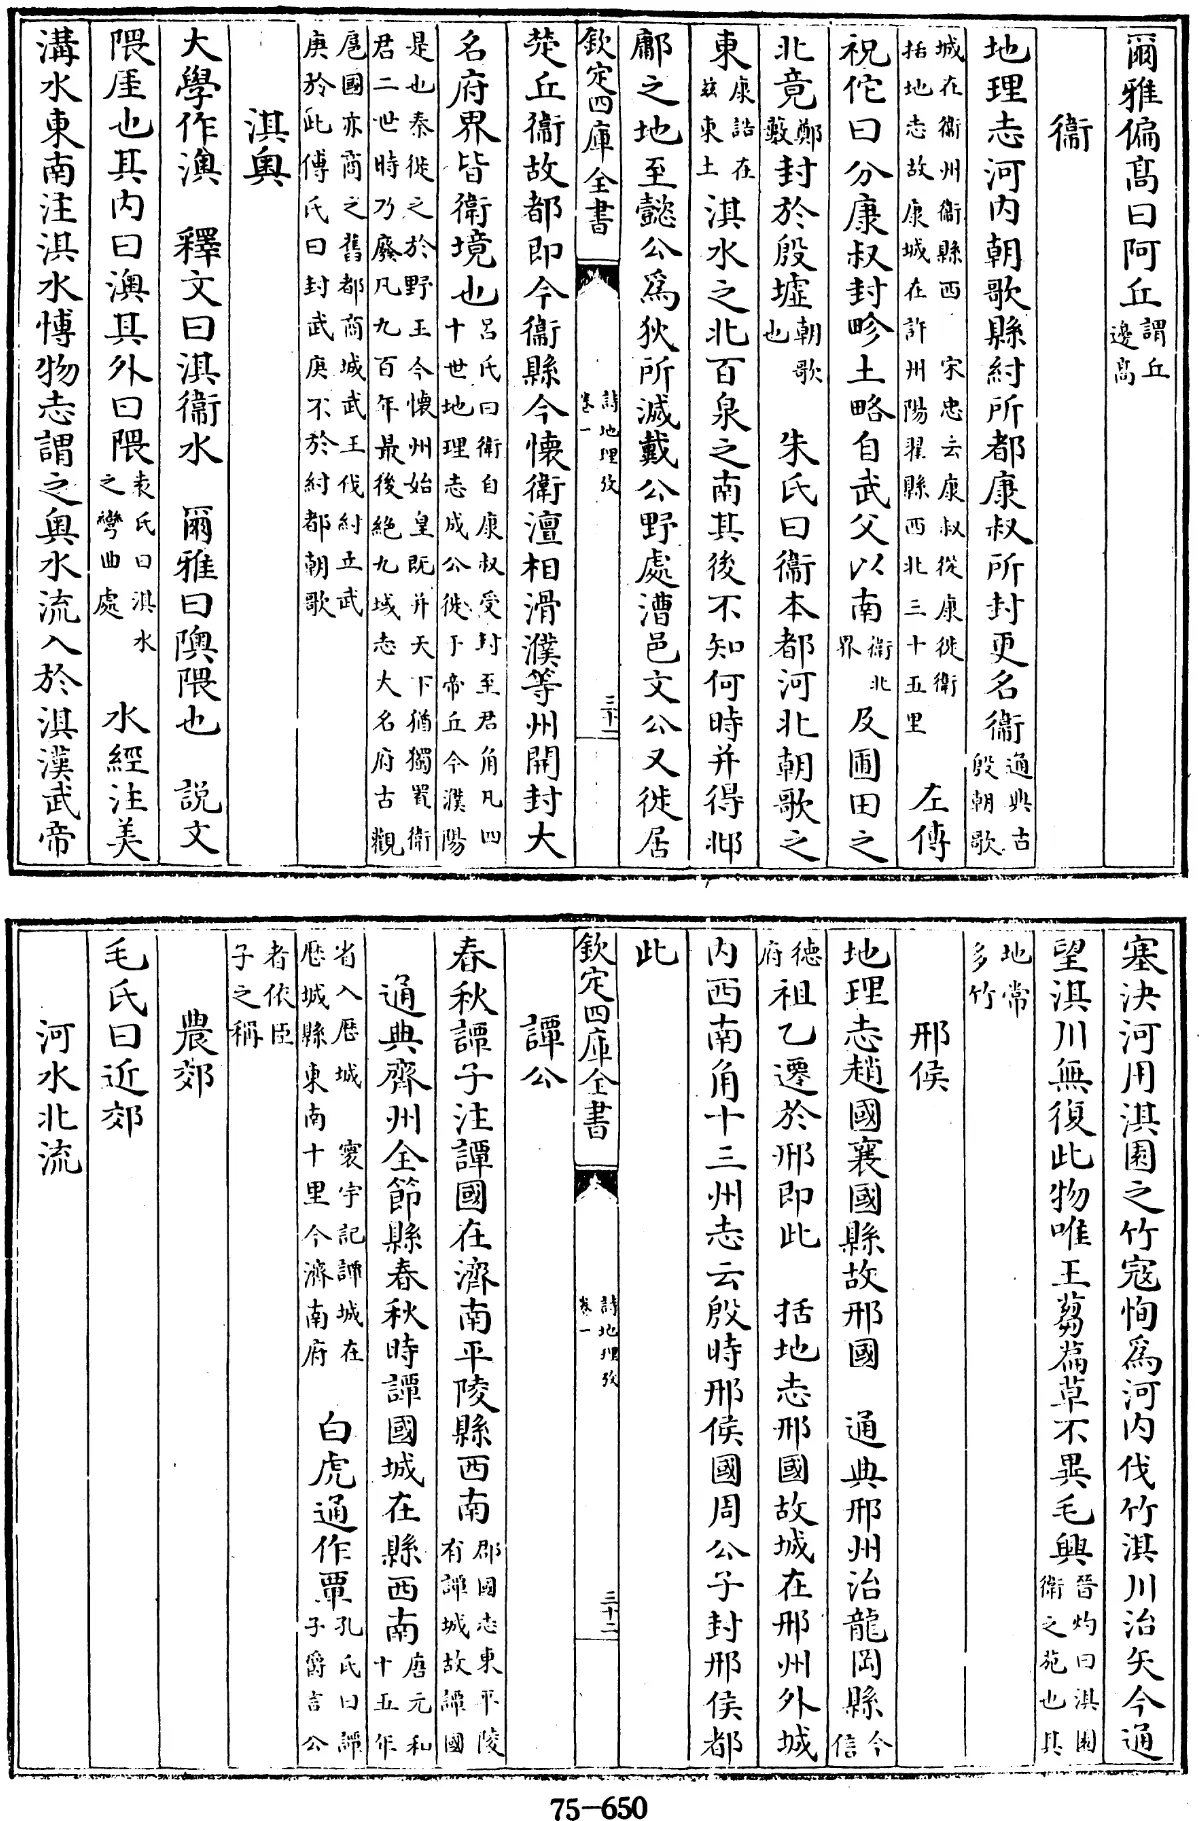 爾雅偏髙曰阿丘謂丘邊髙
衞
地理志河内朝歌縣紂所都康叔所封更名衞通典古殷朝歌
城在衞州衞縣西 宋忠云康叔從康徙衞括地志故康城在許州陽翟縣西北三十五里 左傳
祝佗曰分康叔封畛土略自武父以南衞北界及圃田之
北竟鄭藪封於殷墟朝歌也 朱氏曰衞本都河北朝歌之
東康誥在兹東土淇水之北百泉之南其後不知何時并得邶
鄘之地至懿公為狄所滅戴公野處漕邑文公又徙居
欽定四庫全書 詩地理攷卷一 三十一
楚丘衞故都即今衞縣今懐衛澶相滑濮等州開封大
名府界皆衛境也吕氏曰衛自康叔受封至君角凡四十世地理志成公徙于帝丘今濮陽
是也秦徙之於野王今懐州始皇既并天下猶獨置衛君二世時乃廢凡九百年最後絶九域志大名府古觀
扈國亦商之舊都商城武王伐紂立武庚於此傅氏曰封武庚不於紂都朝歌
淇奥
大學作澳 釋文曰淇衞水 爾雅曰隩隈也 説文
隈厓也其内曰澳其外曰隈袁氏曰淇水之彎曲處 水經注美
溝水東南注淇水博物志謂之奥水流入於淇漢武帝
塞決河用淇園之竹寇恂為河内伐竹淇川治矢今通
望淇川無復此物唯王芻萹草不異毛興晉灼曰淇園衛之苑也其
地常多竹
邢侯
地理志趙國襄國縣故邢國 通典邢州治龍岡縣今信
德府祖乙遷於邢即此 括地志邢國故城在邢州外城
内西南角十三州志云殷時邢侯國周公子封邢侯都
此
欽定四庫全書 詩地理攷卷一 三十二
譚公
春秋譚子注譚國在濟南平陵縣西南郡國志東平陵有譚城故譚國
通典齊州全節縣春秋時譚國城在縣西南唐元和十五年
省入歴城 寰宇記譚城在歴城縣東南十里今濟南府 白虎通作覃孔氏曰譚子爵言公
者依臣子之稱
農郊
毛氏曰近郊
河水北流
75-650